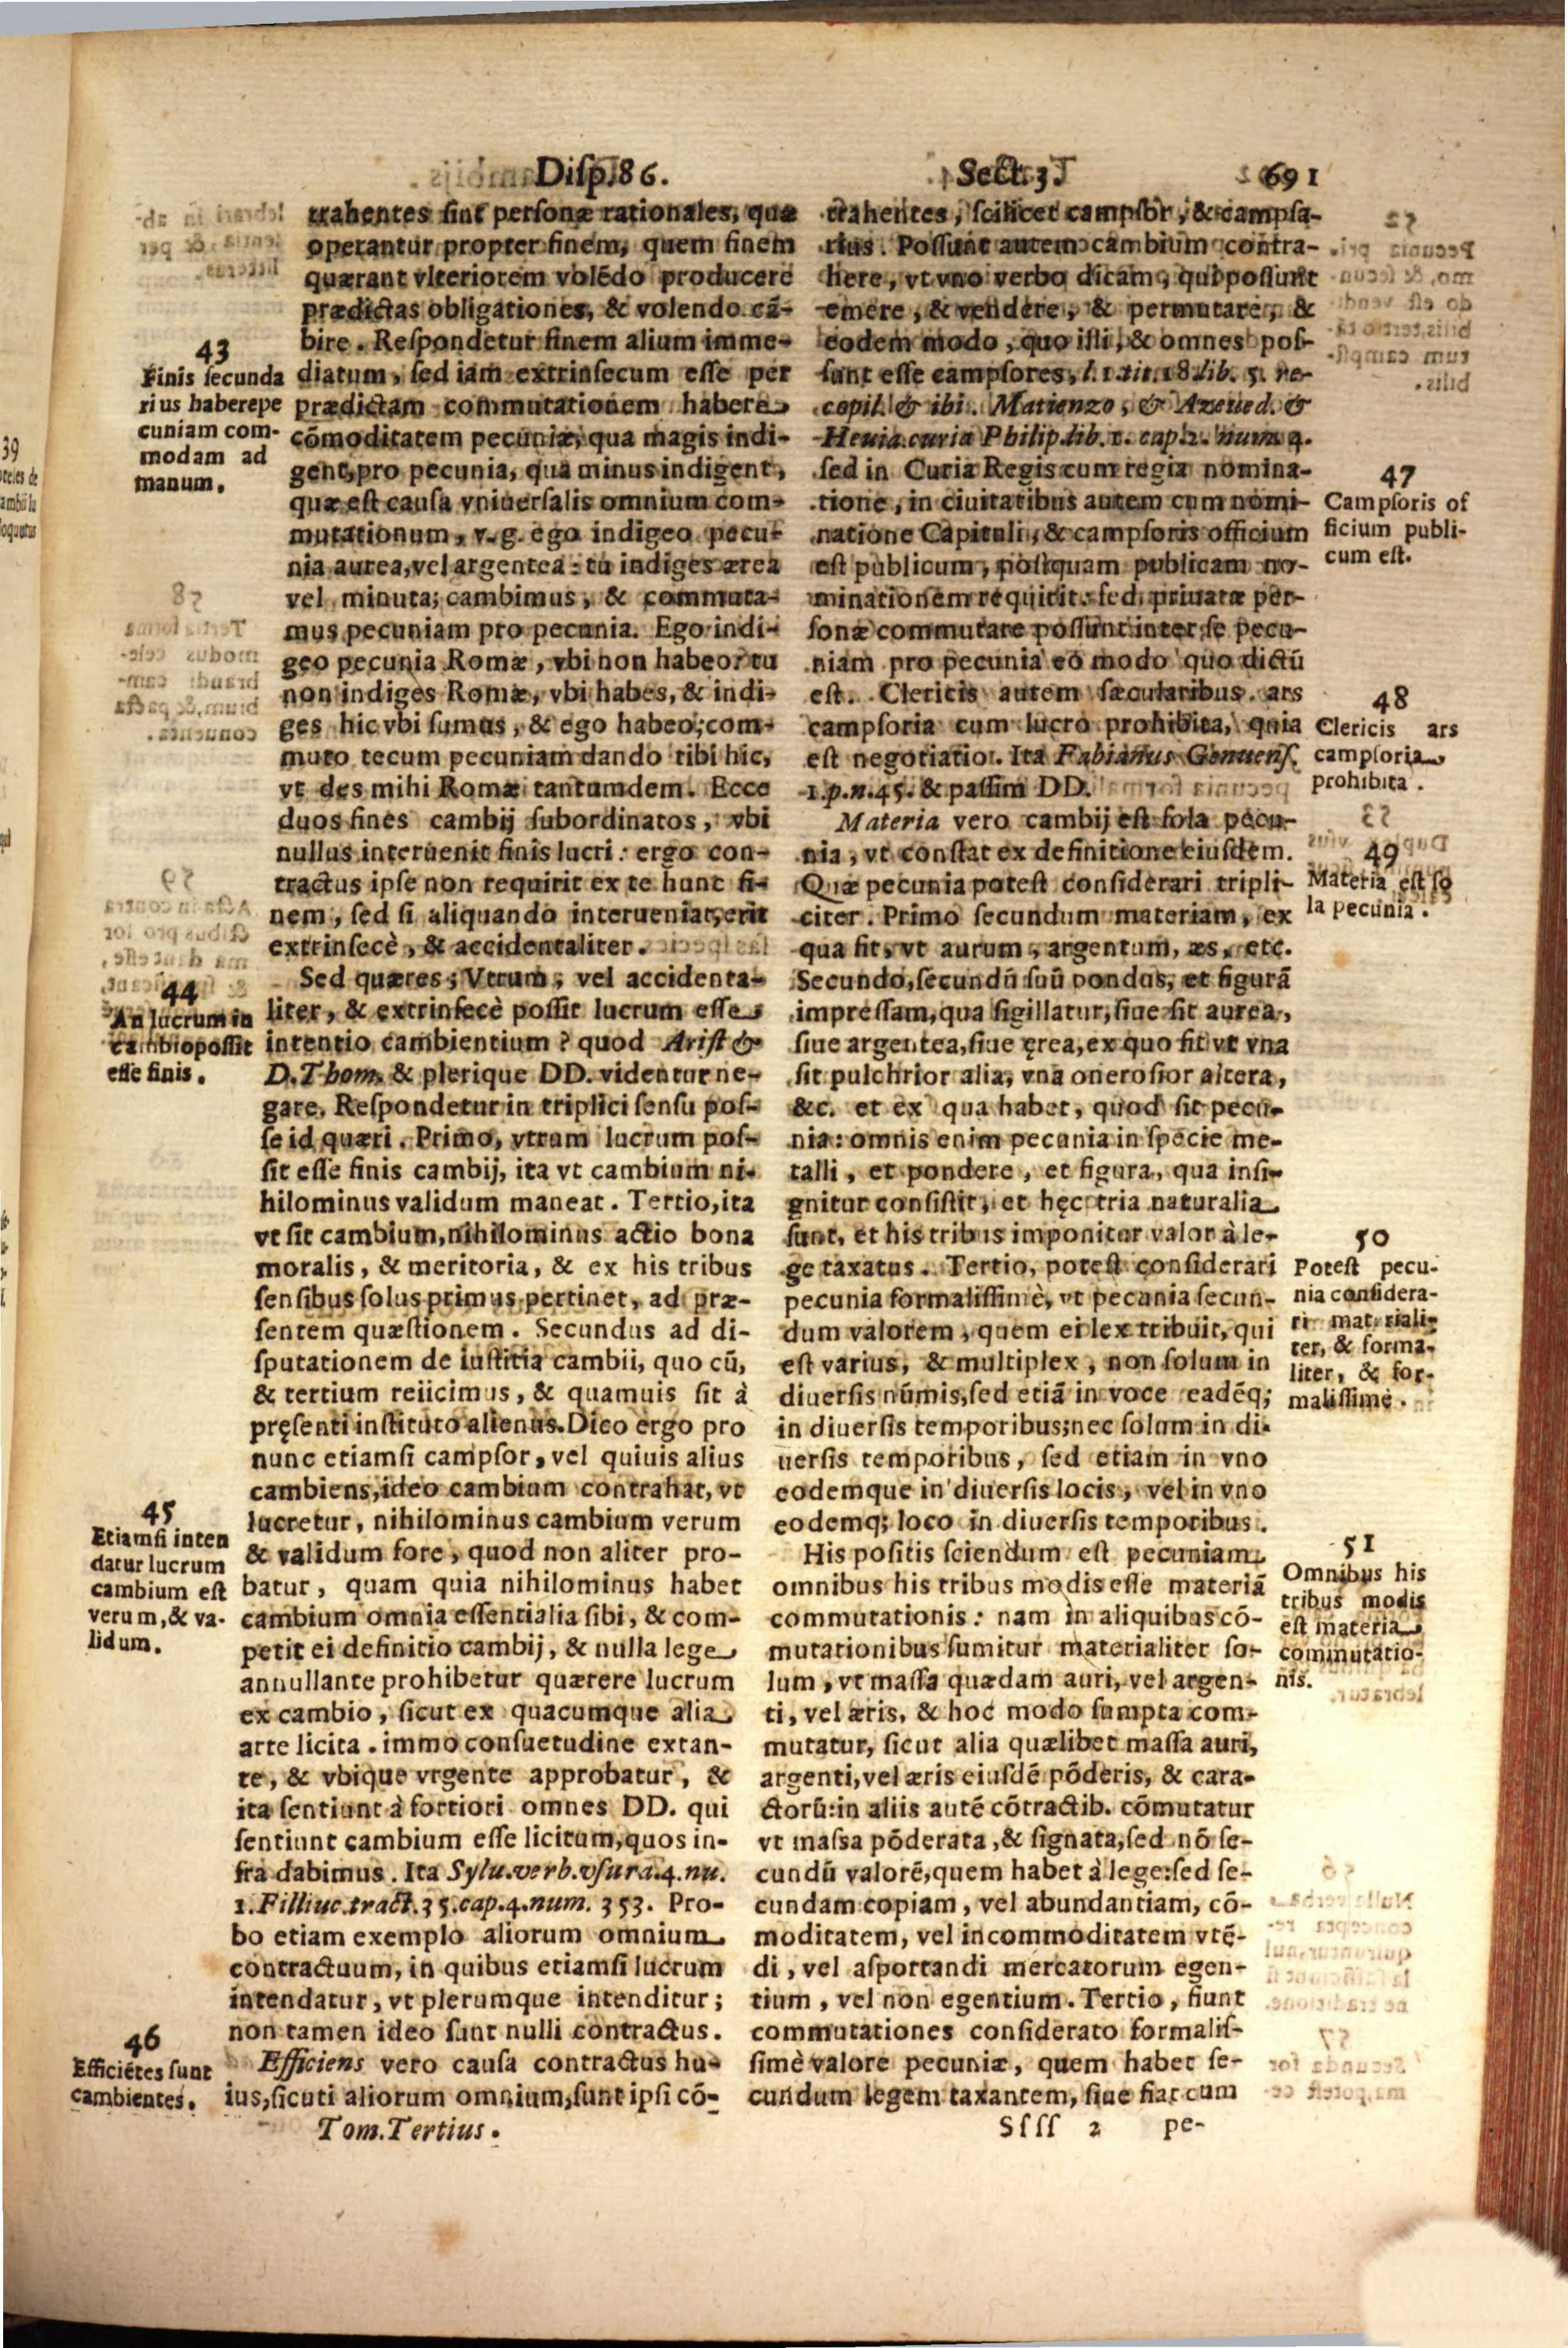 Disp. 86. Sect. 3. 691
trahentes sint personæ rationales, quæ
operantur propter finem, quem finem
quærant vlteriorem volẽdo producere
prædictas obligationes, & volendo cã-
bire. Respondetur finem alium imme-
diatum, sed iam extrinsecum esse per
prædictam commutationem habere
cõmoditatem pecuniæ, qua magis indi-
gent, pro pecunia, qua minus indigent,
quæ est causa vniuersalis omnium com-
mutationum, v. g. ego indigeo pecu-
nia aurea, vel argentea: tu indiges ærea
vel minuta; cambimus, & commuta-
mus pecuniam pro pecunia. Ego indi-
geo pecunia Romæ, vbi non habeo: tu
non indiges Romæ, vbi habes, & indi-
ges hic vbi sumus, & ego habeo; com-
muto tecum pecuniam dando tibi hic,
vt des mihi Romæ tantumdem. Ecce
duos fines cambij subordinatos, vbi
nullus interuenit finis lucri: ergo con-
tractus ipse non requirit ex te hunc fi-
nem, sed si aliquando interueniat, erit
extrinsecè, & accidentaliter.
Sed quæres; Vtrum, vel accidenta-
liter, & extrinsecè possit lucrum esse
intentio cambientium? quod Arist &
D. Thom. & plerique DD. videntur ne-
gare. Respondetur in triplici sensu pos-
se id quæri. Primo, vtrum lucrum pos-
sit esse finis cambij, ita vt cambium ni-
hilominus validum maneat. Tertio, ita
vt sit cambium, nihilominus actio bona
moralis, & meritoria, & ex his tribus
sensibus solus primus pertinet, ad præ-
sentem quæstionem. Secundus ad di-
sputationem de iustitia cambii, quo cũ,
& tertium reiicimus, & quamuis sit à
pręsenti instituto alienus. Dico ergo pro
nunc etiamsi campsor, vel quiuis alius
cambiens, ideo cambium contrahat, vt
lucretur, nihilominus cambium verum
& validum fore, quod non aliter pro-
batur, quam quia nihilominus habet
cambium omnia essentialia sibi, & com-
petit ei definitio cambij, & nulla lege
annullante prohibetur quærere lucrum
ex cambio, sicut ex quacumque alia
arte licita. immo consuetudine extan-
te, & vbique vrgente approbatur, &
ita sentiunt à fortiori omnes DD. qui
sentiunt cambium esse licitum, quos in-
fra dabimus. Ita Sylu. verb. vsura. 4. nu.
1. Filliuc. tract. 35. cap. 4. num. 353. Pro-
bo etiam exemplo aliorum omnium
contractuum, in quibus etiamsi lucrum
intendatur, vt plerumque intenditur;
non tamen ideo sunt nulli contractus.
Efficiens vero causa contractus hu-
ius, sicuti aliorum omnium, sunt ipsi cõ-
Tom. Tertius.
43
Finis secunda
rius habere pe
cuniam com-
modam ad
manum.
44
An lucrum in
cambio possit
esse finis.
45
Etiamsi inten
datur lucrum
cambium est
verum, & va-
lidum.
46
Efficiẽtes sunt
cambientes.
trahentes, scilicet campsor, & campsa-
rius. Possunt autem cambium contra-
here, vt vno verbo dicam, qui possunt
emere, & vendere, & permutare, &
eodem modo, quo illi, & omnes pos-
sunt esse campsores, l. 1. tit. 18. lib. 5. re-
copil. & ibi. Matienzo, & Azeued. &
Heuia. curia Philip. lib. 1. cap. 2. num. 4.
sed in Curia Regis cum regia nomina-
tione, in ciuitatibus autem cum nomi-
natione Capituli, & campsoris officium
est publicum, postquam publicam no-
minationem requirit: sed priuatæ per-
sonæ commutare possunt inter se pecu-
niam pro pecunia eo modo quo dictũ
est. Clericis autem sæcularibus ars
campsoria cum lucro prohibita, quia
est negotiatio. Ita Fabianus Genuens.
1. p. n. 45. & passim DD.
Materia vero cambij est sola pecu-
nia, vt constat ex definitione eiusdem.
Quæ pecunia potest considerari tripli-
citer. Primo secundum materiam, ex
qua fit, vt aurum, argentum, æs, etc.
Secundo, secundũ suũ pondus, et figurã
impressam, qua sigillatur, siue sit aurea,
siue argentea, siue ęrea, ex quo fit vt vna
sit pulchrior alia, vna onerosior altera,
&c. et ex qua habet, quod sit pecu-
nia: omnis enim pecunia in specie me-
talli, et pondere, et figura, qua insi-
gnitur consistit, et hęc tria naturalia
sunt, et his tribus imponitur valor à le-
ge taxatus. Tertio, potest considerari
pecunia formalissimè, vt pecunia secun-
dum valorem, quem ei lex tribuit, qui
est varius, & multiplex, non solum in
diuersis nũmis, sed etiã in voce eadẽq;
in diuersis temporibus; nec solum in di-
uersis temporibus, sed etiam in vno
eodemque in diuersis locis, vel in vno
eodemq; loco in diuersis temporibus.
His positis sciendum est pecuniam
omnibus his tribus modis esse materiã
commutationis: nam in aliquibus cõ-
mutationibus sumitur materialiter so-
lum, vt massa quædam auri, vel argen-
ti, vel æris, & hoc modo sumpta com-
mutatur, sicut alia quælibet massa auri,
argenti, vel æris eiusdẽ põderis, & cara-
ctorũ: in aliis autẽ cõtractib. cõmutatur
vt massa põderata, & signata, sed nõ se-
cundũ valorẽ, quem habet à lege: sed se-
cundam copiam, vel abundantiam, cõ-
moditatem, vel incommoditatem vtẽ-
di, vel asportandi mercatorum egen-
tium, vel non egentium. Tertio, fiunt
commutationes considerato formalis-
simè valore pecuniæ, quem habet se-
cundum legem taxantem, siue fiat cum
Ssss 2 pe-
47
Campsoris of
ficium publi-
cum est.
48
Clericis ars
campsoria
prohibita.
49
Materia est so
la pecunia.
50
Potest pecu-
nia considera-
ri materiali-
ter, & forma-
liter, & for-
malissimè.
51
Omnibus his
tribus modis
est materia
commutatio-
nis.